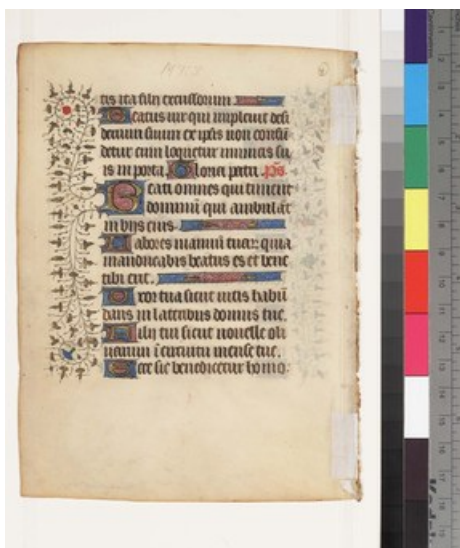 tis ita filij excussorum.
Beatus vir qui impleuit desi
derium suum ex ipsis non confū
detur cum loquetur inimicis su
is in porta. Gloria patri. p̄s.
Beati omnes qui timent
dominū qui ambulāt
in vijs eius.
Labores manuū tuarū quia
manducabis beatus es et bene
tibi erit.
Uxor tua sicut vitis habū
dans in lateribus domus tue.
Filij tui sicut nouelle oli
uarum ī circuitu mense tue.
Ecce sic benedicetur homo